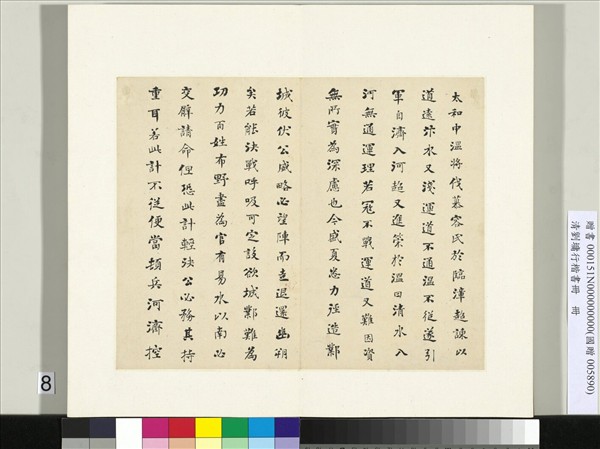 太和中溫將伐慕容氏於臨漳超諫以
道遠汴水又淺運道不通溫不從遂引
軍自濟入河超又進策於溫曰清水入
河無通運理若冦不戰運道又難因資
無所實為深慮也今盛夏悉力徑造鄴
城彼伏公威略必望陣而走退還幽朔
矣若能決戰呼吸可定設欲城鄴難為
功力百姓布野盡為官有易水以南必
交臂請命但恐此計輕決公必務其持
重耳若此計不從便當頓兵河濟控
贈書 000151N000000000(國贈 005890)
清劉墉行楷書冊 冊
8